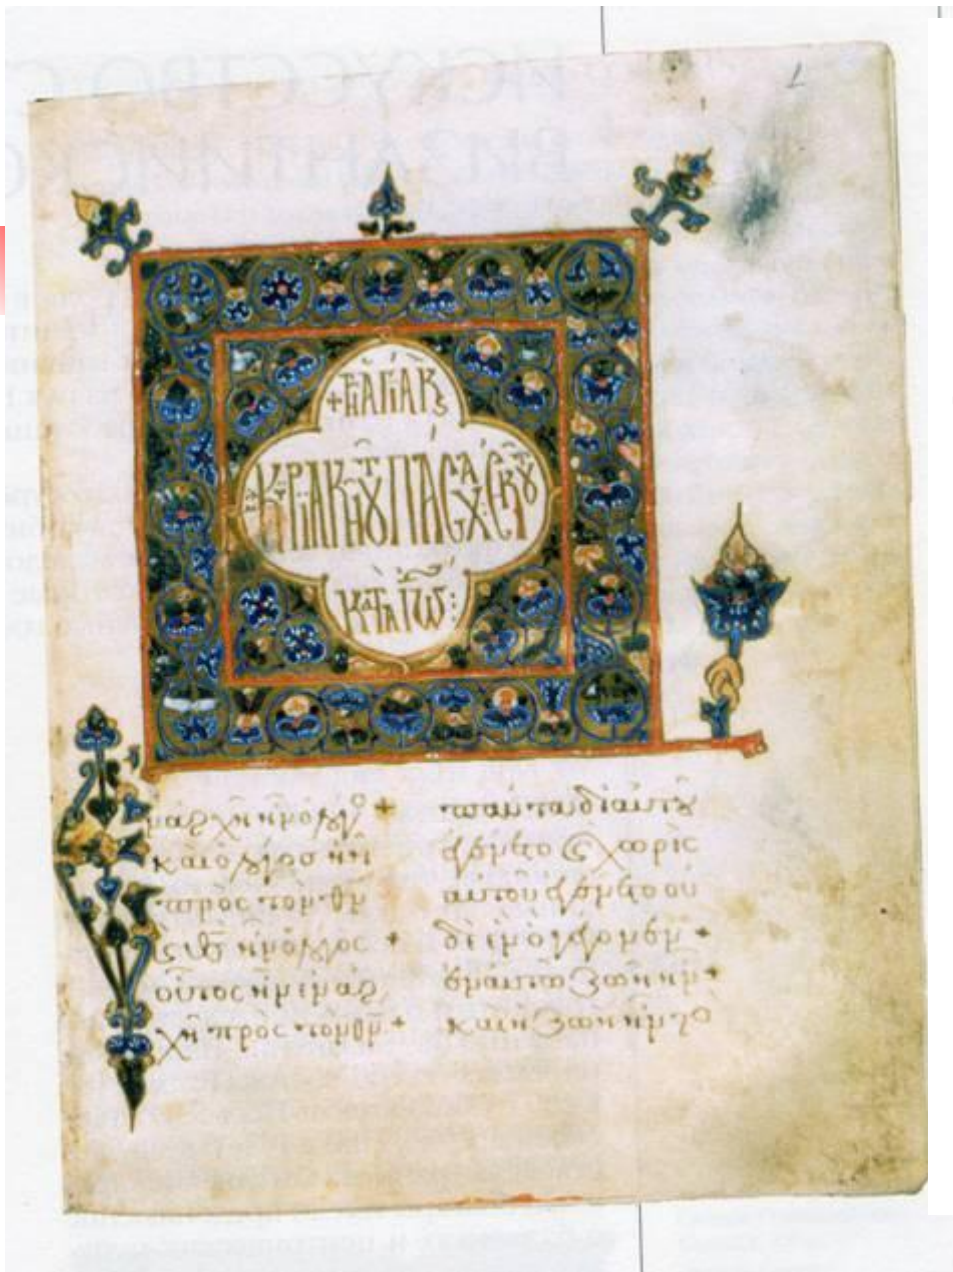 1
+ τῇ ἁγίᾳ κς
κυριακῇ τοῦ πάσχα· ἐκ τοῦ
κατὰ ἰω:
ν ἀρχῆ ἦν ὁ λόγο +
καὶ ὁ λόγος ἦν
πρὸς τὸν θν
ς θς ἦν ὁ λόγος +
οὗτος ἦν ἐν ἀρ
χῆ πρὸς τὸν θν +
πάντα δι αὐτοῦ
ἐγένετο ς χωρὶς
αὐτοῦ ἐγένετο οὐ
δὲ ἓν ὃ γέγονεν +
ἐν αὐτῶ ζωὴ ἦν +
καὶ ἡ ζωὴ ἦν τὸ